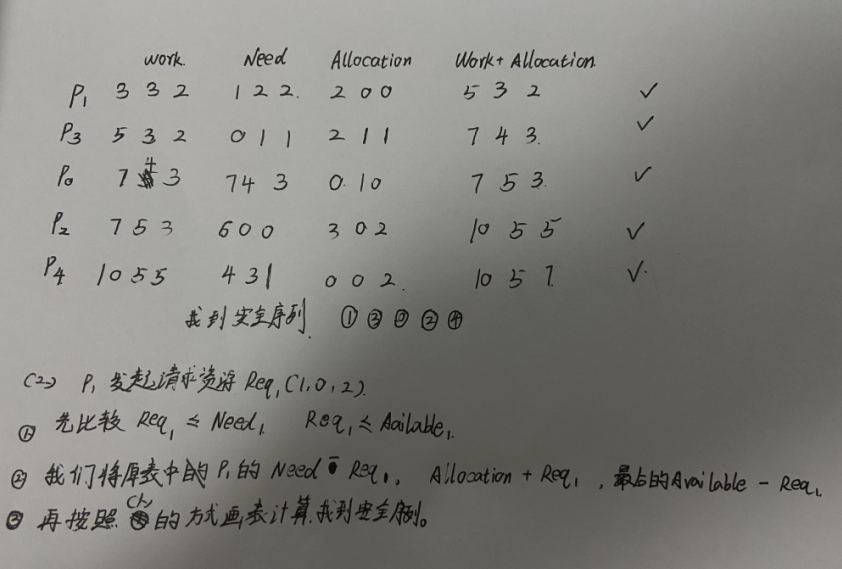 work Need Allocation Work + Allocation
P₁ 3 3 2 1 2 2 2 0 0 5 3 2 ✓
P₃ 5 3 2 0 1 1 2 1 1 7 4 3 ✓
P₀ 7 4 3 7 4 3 0 1 0 7 5 3 ✓
P₂ 7 5 3 6 0 0 3 0 2 10 5 5 ✓
P₄ 10 5 5 4 3 1 0 0 2 10 5 7 ✓
找到安全序列 ① ③ ⓪ ② ④
(2) P₁ 发起请求资源 Req₁(1,0,2)
① 先比较 Req₁ ≤ Need₁ Req₁ ≤ Aailable₁
② 我们将原表中的 P₁ 的 Need - Req₁, Allocation + Req₁, 的 Available - Req₁
③ 再按照 (1) 的方式画表计算,找到安全序列。